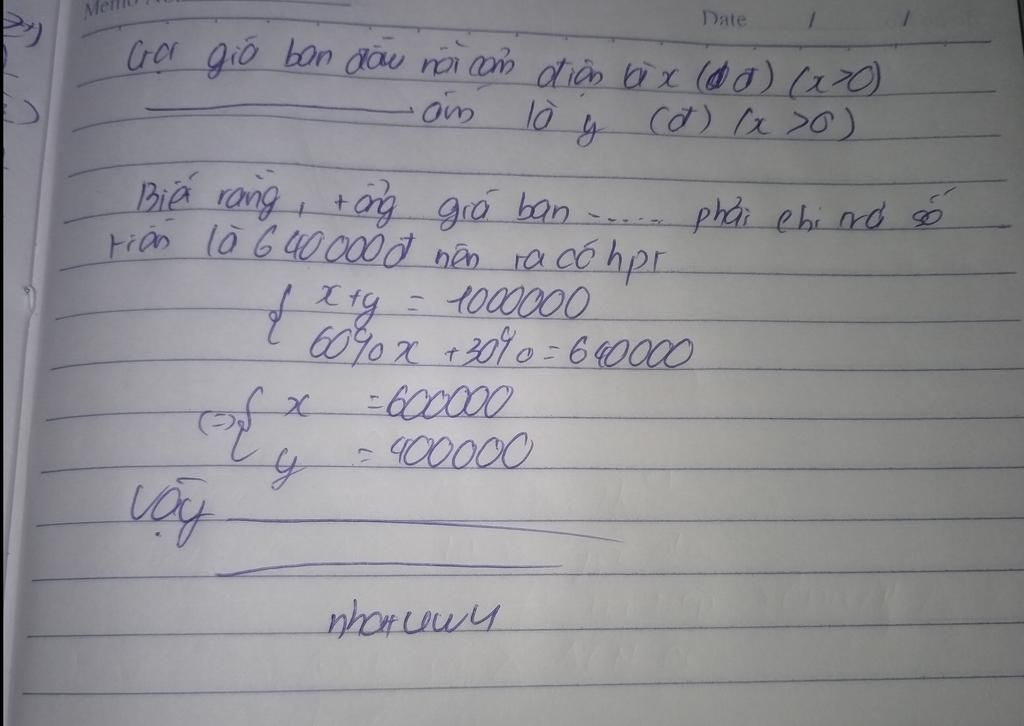 Memo No.
Date / /
Gọi giá ban đầu nồi cơm điện là x (đ) (x>0)
ấm là y (đ) (x >0)
Biết rằng, tổng giá bán ...... phải chi trả số
tiền là 640000đ nên ta có hpt
{ x+y = 1000000
60%x +30%=640000
(=>{ x =600000
y = 400000
Vậy